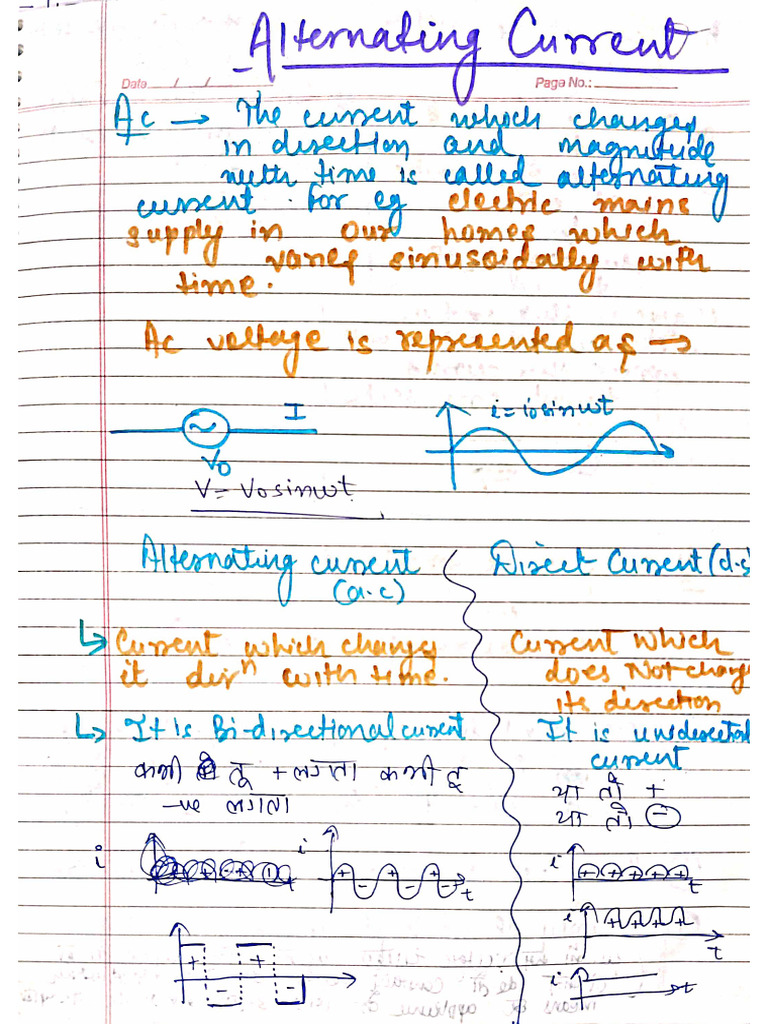 Alternating Current
Date / /
Page No.:
Ac → The current which changes
in direction and magnitude
with time is called alternating
current. for eg electric mains
supply in our homes which
varies sinusoidally with
time.
Ac voltage is represented as →
I
i = i₀sinωt
V₀
V = V₀sinωt
Alternating current
(a.c)
Direct Current (d.
↳ Current which changes
it dirⁿ with time.
Current which
does Not change
its direction
↳ It is Bi-directional current
It is unidirectional
current
कभी तू + लगता कभी तू
-ve लगता
या तो +
या तो ⊖
i
i
+ - + - + -
t
i
+ + + + +
t
i
+ + + +
t
+ - + -
i
t